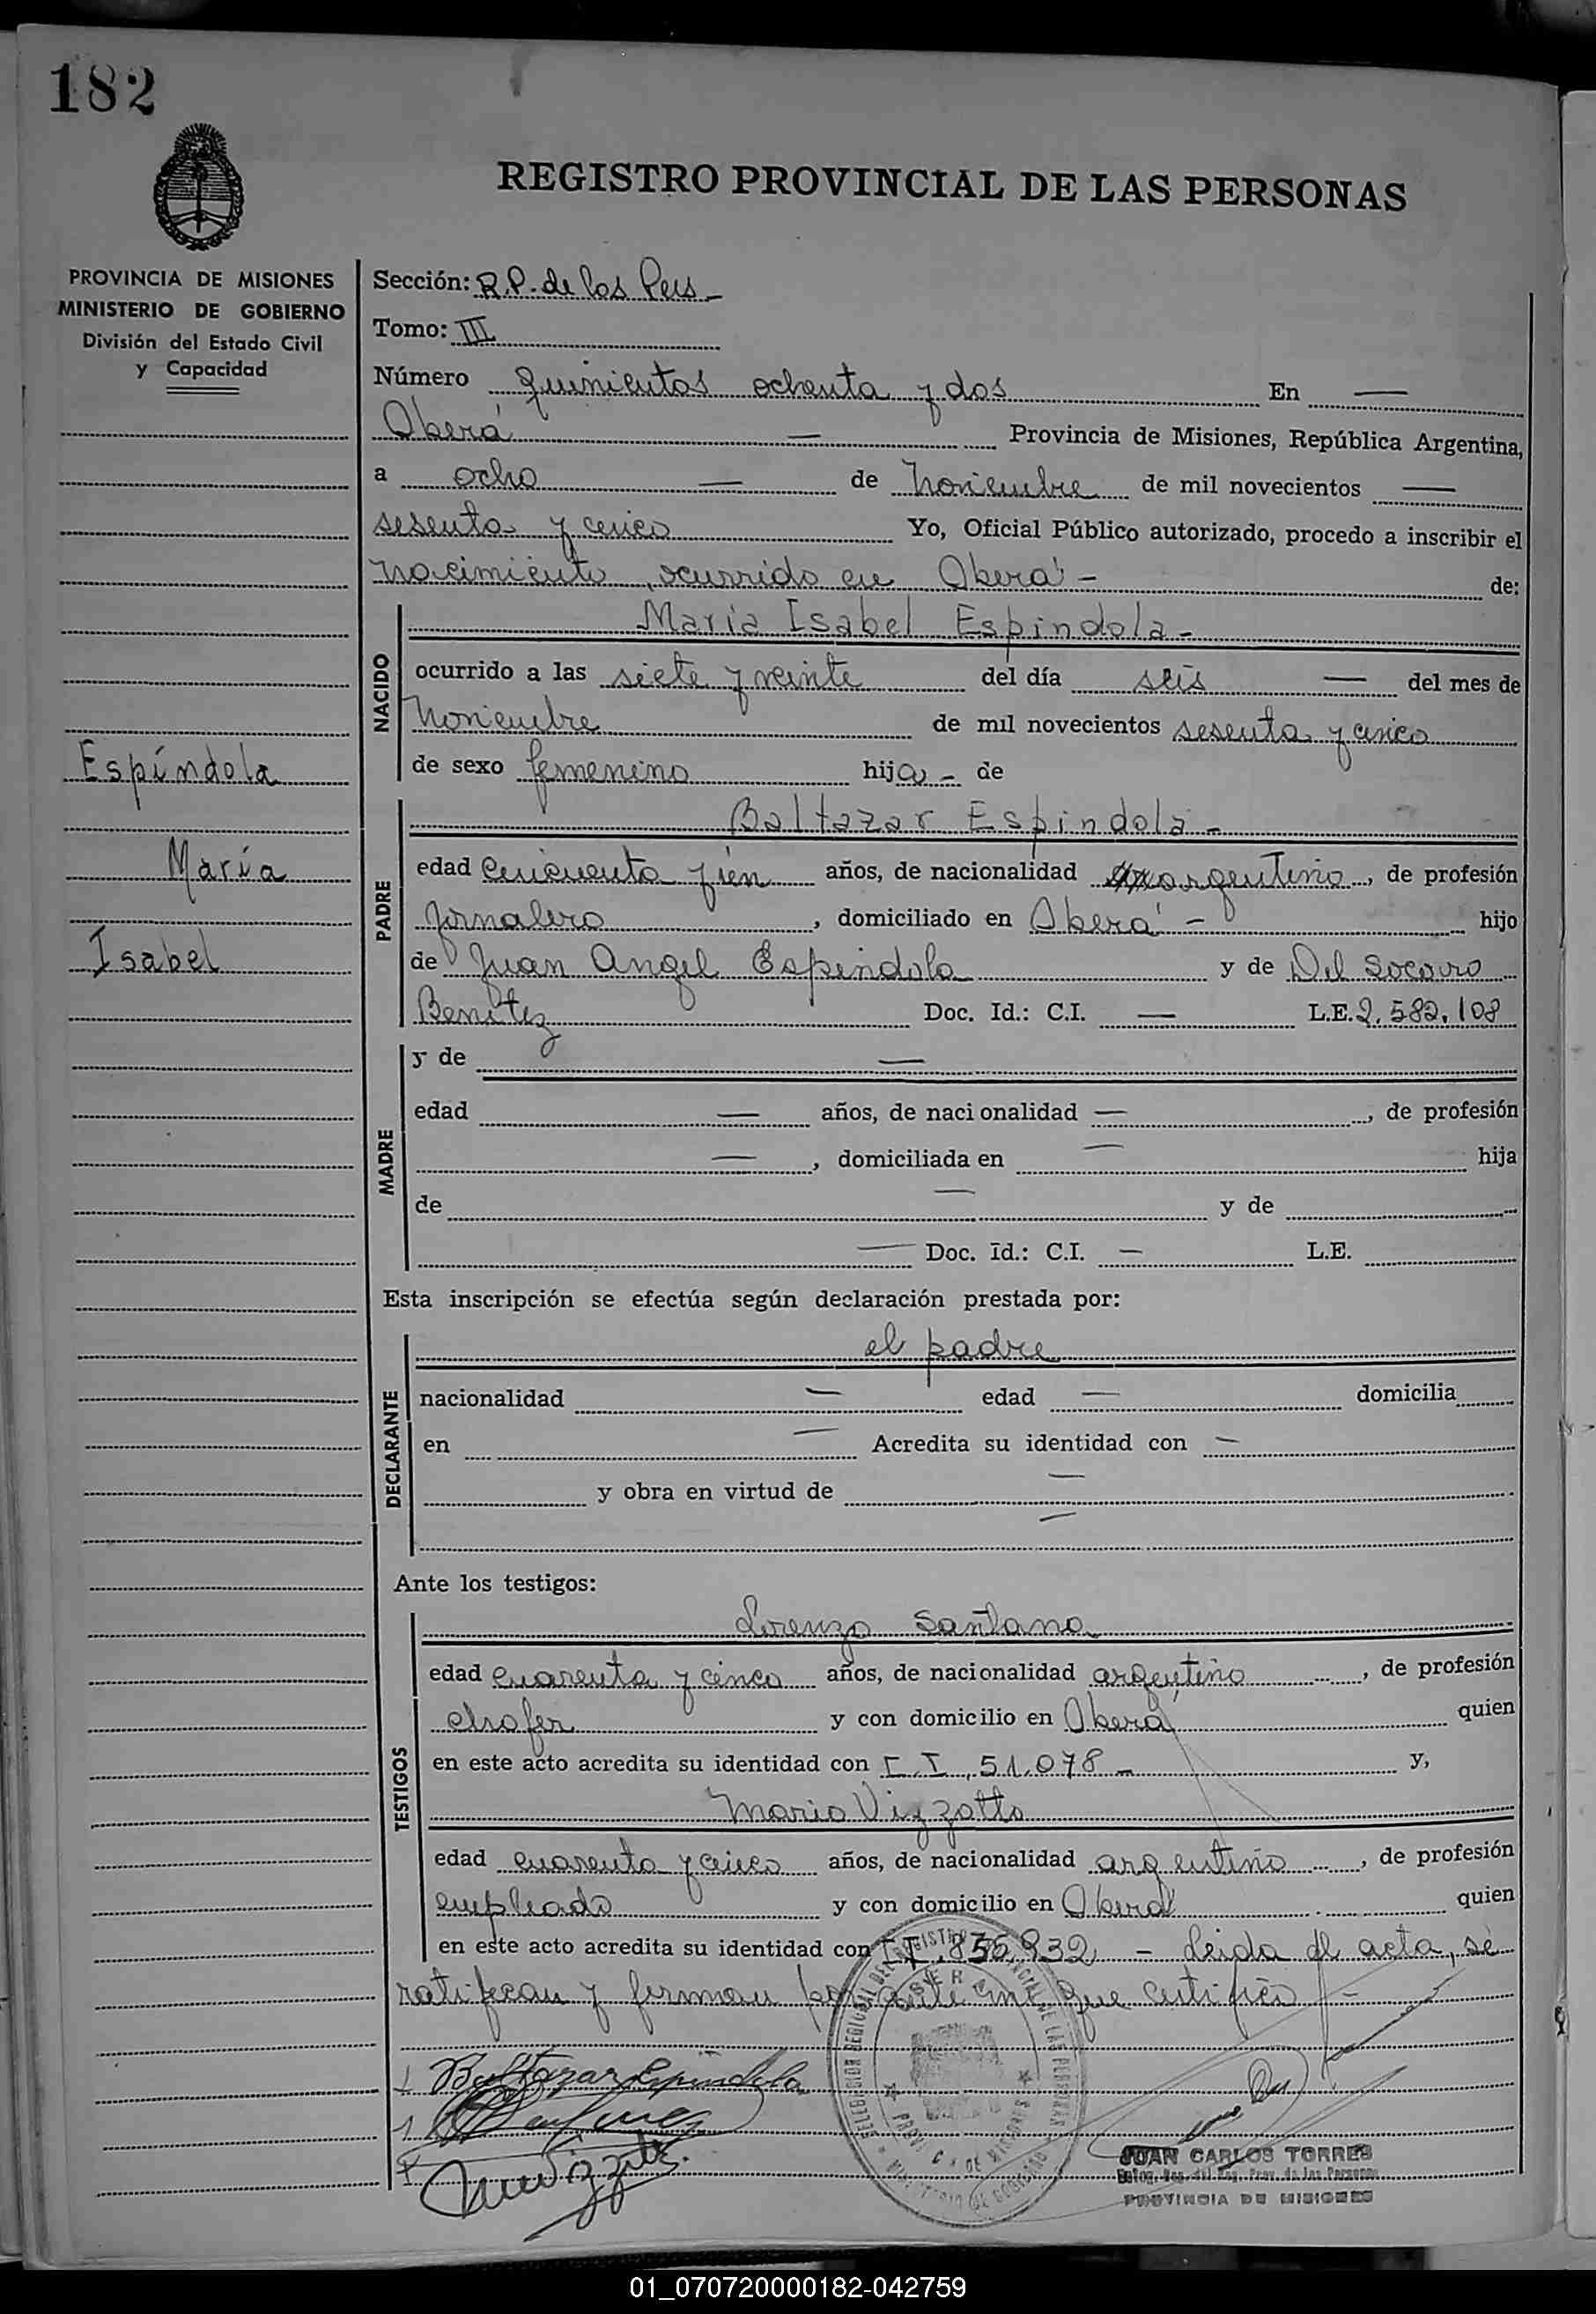 182
REGISTRO PROVINCIAL DE LAS PERSONAS
PROVINCIA DE MISIONES
MINISTERIO DE GOBIERNO
División del Estado Civil
y Capacidad
Espíndola
María
Isabel
Sección: R.P. de las Pers -
Tomo: III
Número quinientos ochenta y dos En —
Oberá — Provincia de Misiones, República Argentina,
a ocho — de noviembre de mil novecientos —
sesenta y cinco Yo, Oficial Público autorizado, procedo a inscribir el
nacimiento, ocurrido en Oberá - de:
NACIDO
María Isabel Espíndola -
ocurrido a las siete y veinte del día seis — del mes de
noviembre de mil novecientos sesenta y cinco
de sexo femenino hija - de
PADRE
Baltazar Espíndola -
edad cincuenta y años, de nacionalidad argentino, de profesión
jornalero, domiciliado en Oberá - hijo
de Juan Angel Espíndola y de Del Socorro
Benítez Doc. Id.: C.I. — L.E. 2.582.108
MADRE
y de —
edad — años, de nacionalidad —, de profesión
—, domiciliada en — hija
de — y de
— Doc. Id.: C.I. — L.E.
Esta inscripción se efectúa según declaración prestada por:
DECLARANTE
el padre
nacionalidad — edad — domicilia
en — Acredita su identidad con —
y obra en virtud de —
—
Ante los testigos:
TESTIGOS
Lorenzo Santana
edad cuarenta y cinco años, de nacionalidad argentino, de profesión
chofer y con domicilio en Oberá quien
en este acto acredita su identidad con C.I. 51.078 - y,
Mario Vizzotto
edad cuarenta y cinco años, de nacionalidad argentino, de profesión
empleado y con domicilio en Oberá quien
en este acto acredita su identidad con C.I. 836.932 - Leida el acta, se
ratifican y firman por ante mí que certifico -
Baltazar Espindola
JUAN CARLOS TORRES
PROVINCIA DE MISIONES
01_070720000182-042759